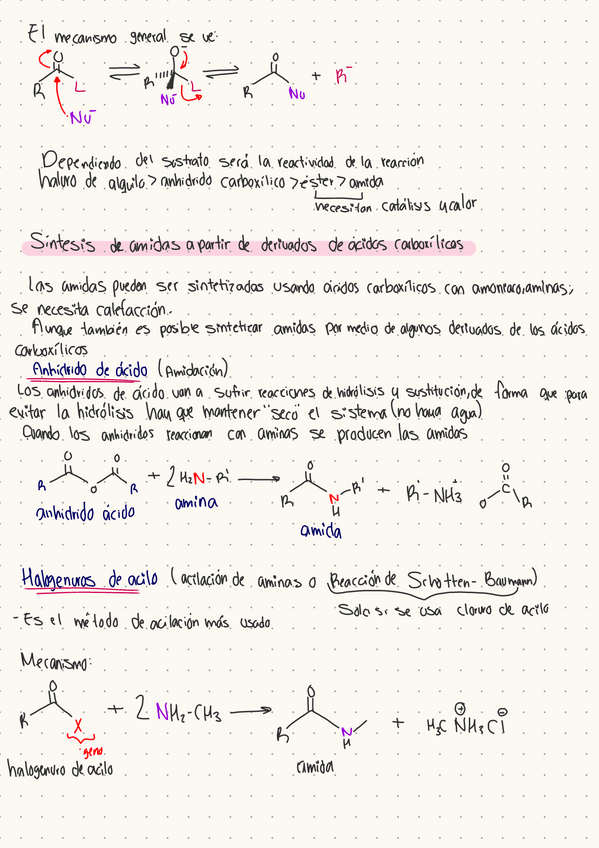 El mecanismo general se ve:
O
O⁻
O
R
L
Nu⁻
R
L
Nu⁻
R
Nu
+ R⁻
Dependiendo del sustrato será la reactividad de la reacción
haluro de alquilo > anhidrido carboxílico > éster > amida
necesitan catálisis y calor.
Síntesis de amidas a partir de derivados de ácidos carboxílicos
Las amidas pueden ser sintetizadas usando ácidos carboxílicos con amoniaco, aminas;
se necesita calefacción.
Aunque también es posible sintetizar amidas por medio de algunos derivados de los ácidos
carboxílicos
Anhídrido de ácido (Amidación)
Los anhidridos de ácido van a sufrir reacciones de hidrólisis y sustitución, de forma que para
evitar la hidrólisis hay que mantener "seco" el sistema (no haya agua)
Cuando los anhidridos reaccionan con aminas se producen las amidas
O O
R O R
+ 2 H₂N-R'
O
R N-R'
H
+ R'-NH₃⁺
O
O C R
anhidrido ácido
amina
amida
Halogenuros de acilo (acilación de aminas o Reacción de Schotten-Baumann)
Solo si se usa cloruro de acilo
- Es el método de acilación más usado.
Mecanismo:
O
R X
+ 2 NH₂-CH₃
O
R N
H
+ H₃C NH₃ Cl
⊕ ⊖
geno.
halogenuro de acilo
amida